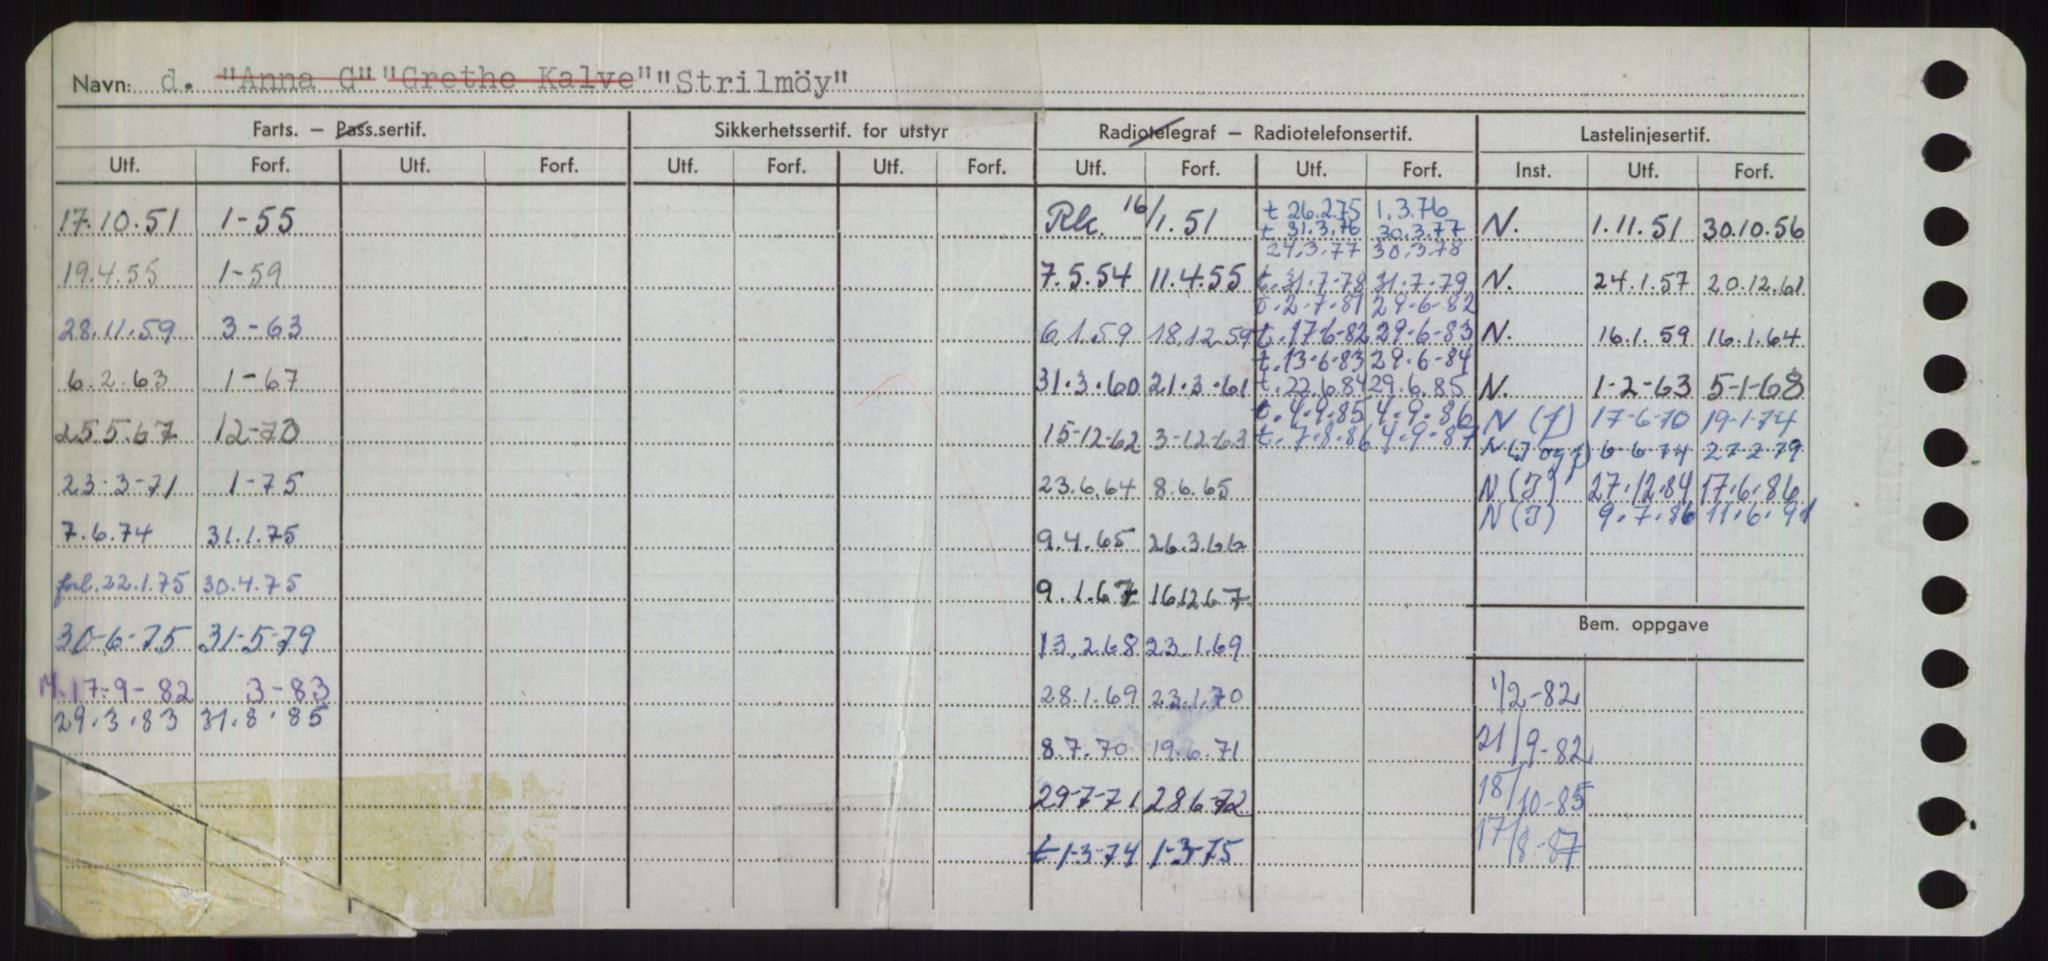 Navn: d. "Anna G" "Grethe Kalve" "Strilmöy"
Farts. — Pass.sertif. Sikkerhetssertif. for utstyr Radiotelegraf — Radiotelefonsertif. Lastelinjesertif.
Utf. Forf. Utf. Forf. Utf. Forf. Utf. Forf. Utf. Forf. Utf. Forf. Inst. Utf. Forf.
17.10.51 1-55 Rk. 16/1.51 t 26.2.75 1.3.76 N. 1.11.51 30.10.56
t 31.3.76 30.3.77
24.3.77 30.3.78
19.4.55 1-59 7.5.54 11.4.55 t.31.7.78 31.7.79 N. 24.1.57 20.12.61
t.2.7.81 29.6.82
28.11.59 3-63 6.1.59 18.12.59 t.17.6.82 29.6.83 N. 16.1.59 16.1.64
t.13.6.83 29.6.84
6.2.63 1-67 31.3.60 21.3.61 t.22.6.84 29.6.85 N. 1-2-63 5-1-68
t.4.9.85 4.9.86 N (f) 17-6-70 19-1-74
25.5.67 12-70 15-12-62 3-12-63 t.7.8.86 4.9.87 N(J og f) 6-6-74 27-2-79
23-3-71 1-75 23.6.64 8.6.65 N (J) 27.12.84 17.6.86
N (J) 9.7.86 11.6.91
7.6.74 31.1.75 9.4.65 26.3.66
forl.22.1.75 30.4.75 9.1.67 16.12.67
30-6-75 31-5-79 13.2.68 23.1.69 Bem. oppgave
M.17-9-82 3-83 28.1.69 23.1.70 1/2-82
29.3.83 31.8.85
8.7.70 19.6.71 21/9-82
29-7-71 28.6-72 18/10-85
t 1-3-74 1-3-75 17/8-87